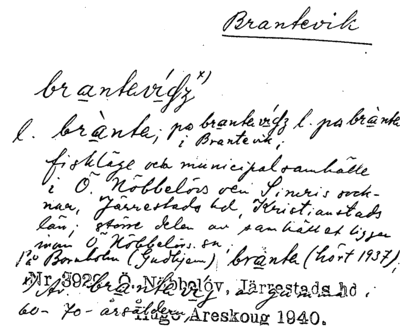 Brantevik
brantevigz x)
l. brànte; pa brantevigz l. pa brànte
i Brantevik;
fiskläge och municipalsamhälle
i Ö. Nöbbelövs och Simris sock-
nar, Järrestads hd, Kristianstads
län; större delen av samhället ligger
inom Ö. Nöbbelövs sn.;
På Bornholm (Gudhjem) brànte (hört 1937);
Nr 392 Ö. Nöbbelöv, Järrestads hd
x) Av
60- 70-årsåldern,
Hugo Areskoug 1940.